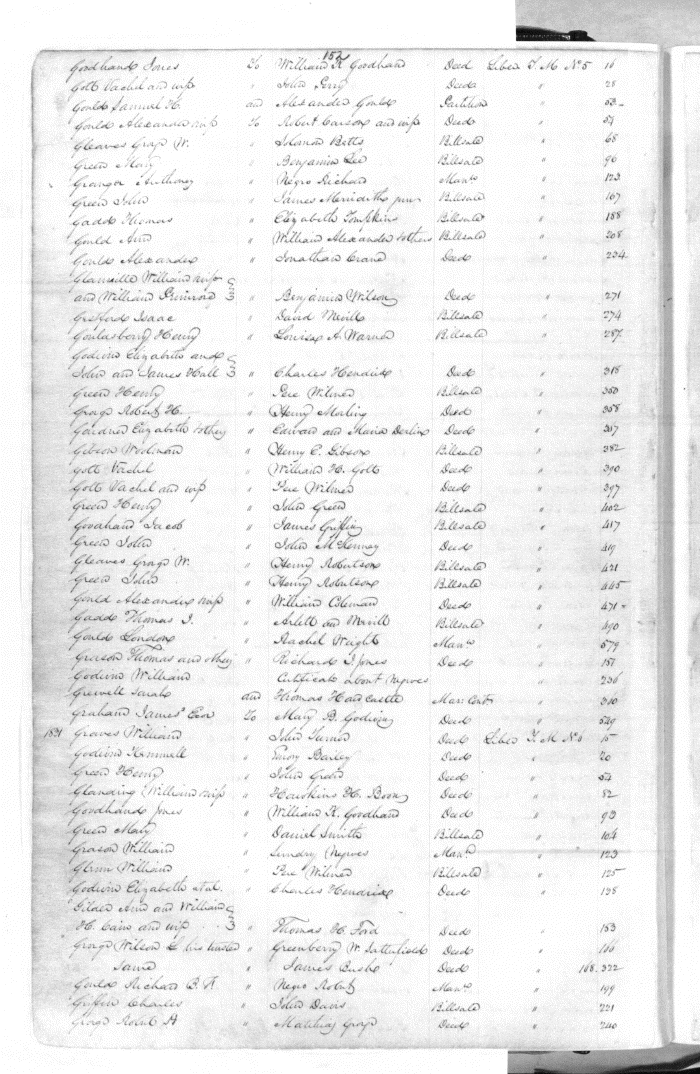 152
Goodhand Jones To William K Goodhand Deed Liber T. M. No 5 16
Gott Vachel and wife " John Perry Deed " 28
Gould Samuel H. and Alexander Gould Partition " 53
Gould Alexander & wife To Robert Carson and wife Deed " 57
Gleaves George W. " Solomon Betts Billsale " 68
Green Mary " Benjamin Lee Billsale " 96
Granger Anthony " Negro Richard Manu " 123
Green John " James Merridith Billsale " 167
Gadd Thomas " Elizabeth Tompkins Billsale " 188
Gould Ann " William Alexander & others Billsale " 208
Gould Alexander " Jonathan Deed " 234
Glanville William & wife
and William Primrose " Benjamin Wilson Deed " 271
Isaac " David Billsale " 274
Gouldsberry Henry " Louisa A. Warner Billsale " 287
Godwin Elizabeth and
John and James Hall " Charles Hendrix Deed " 318
Green Henry " Pere Wilmer Billsale " 350
George Robert H. " Henry Morling Deed " 358
Gardner Elizabeth & others " Edward and Maria Deed " 367
Gibson Woolman " Henry C. Gibson Billsale " 382
Gott Vachel " William H. Gott Deed " 390
Gott Vachel and wife " Pere Wilmer Deed " 397
Green Henry " John Green Billsale " 402
Goodhand Jacob " James Griffin Billsale " 417
Green John " John McKenney Deed " 419
Gleaves George W. " Henry Robertson Billsale " 421
Green John " Henry Robertson Billsale " 445
Gould Alexander & wife " William Coleman Deed " 471
Gadd Thomas I. " Arlett and Merrill Billsale " 490
Gould London " Rachel Wright Manu " 579
Grason Thomas and others " Richard I Jones Deed " 151
Godwin William Certificate about Negroes " 236
Grewell Sarah and Thomas Hardcastle Mar. Cont. " 310
Graham James Exor To Mary B. Deed " 549
1831 Graves William " John Turner Deed Liber T. M. No 6 15
Godwin Kimmell " Bailey Deed " 20
Green Henry " John Green Deed " 54
Glanding William & wife " Hawkins H. Boon Deed " 82
Goodhand Jones " William K. Goodhand Deed " 93
Green Mary " Daniel Smith Billsale " 104
Grason William " Sundry Negroes Manu " 123
Glenn William " Pere Wilmer Billsale " 125
Godwin Elizabeth et al. " Charles Hendrix Deed " 138
Gilder Ann and William
H. Cain and wife " Thomas H. Ford Deed " 153
George Wilson & his trustee " Greenberry W. Satterfield Deed " 166
Same " James Bush Deed " 168-322
Gould Richard B. A. " Negro Robert Manu " 199
Griffin Charles " John Davis Billsale " 221
George Robert H " Matthias George Deed " 240